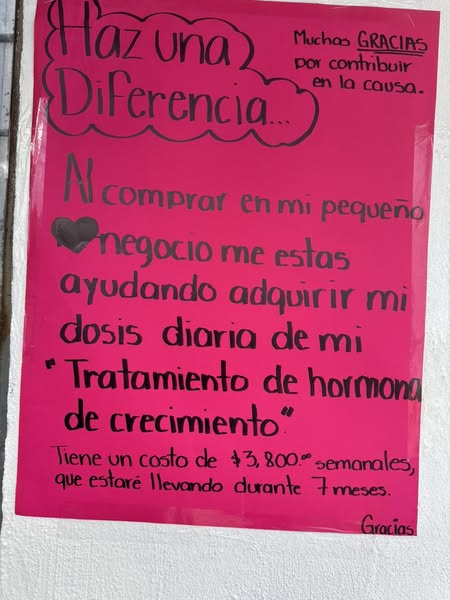 Haz una
Diferencia...
Muchas GRACIAS
por contribuir
en la causa.
Al comprar en mi pequeño
negocio me estas
ayudando adquirir mi
dosis diaria de mi
"Tratamiento de hormona
de crecimiento"
Tiene un costo de $3,800.00 semanales,
que estaré llevando durante 7 meses.
Gracias